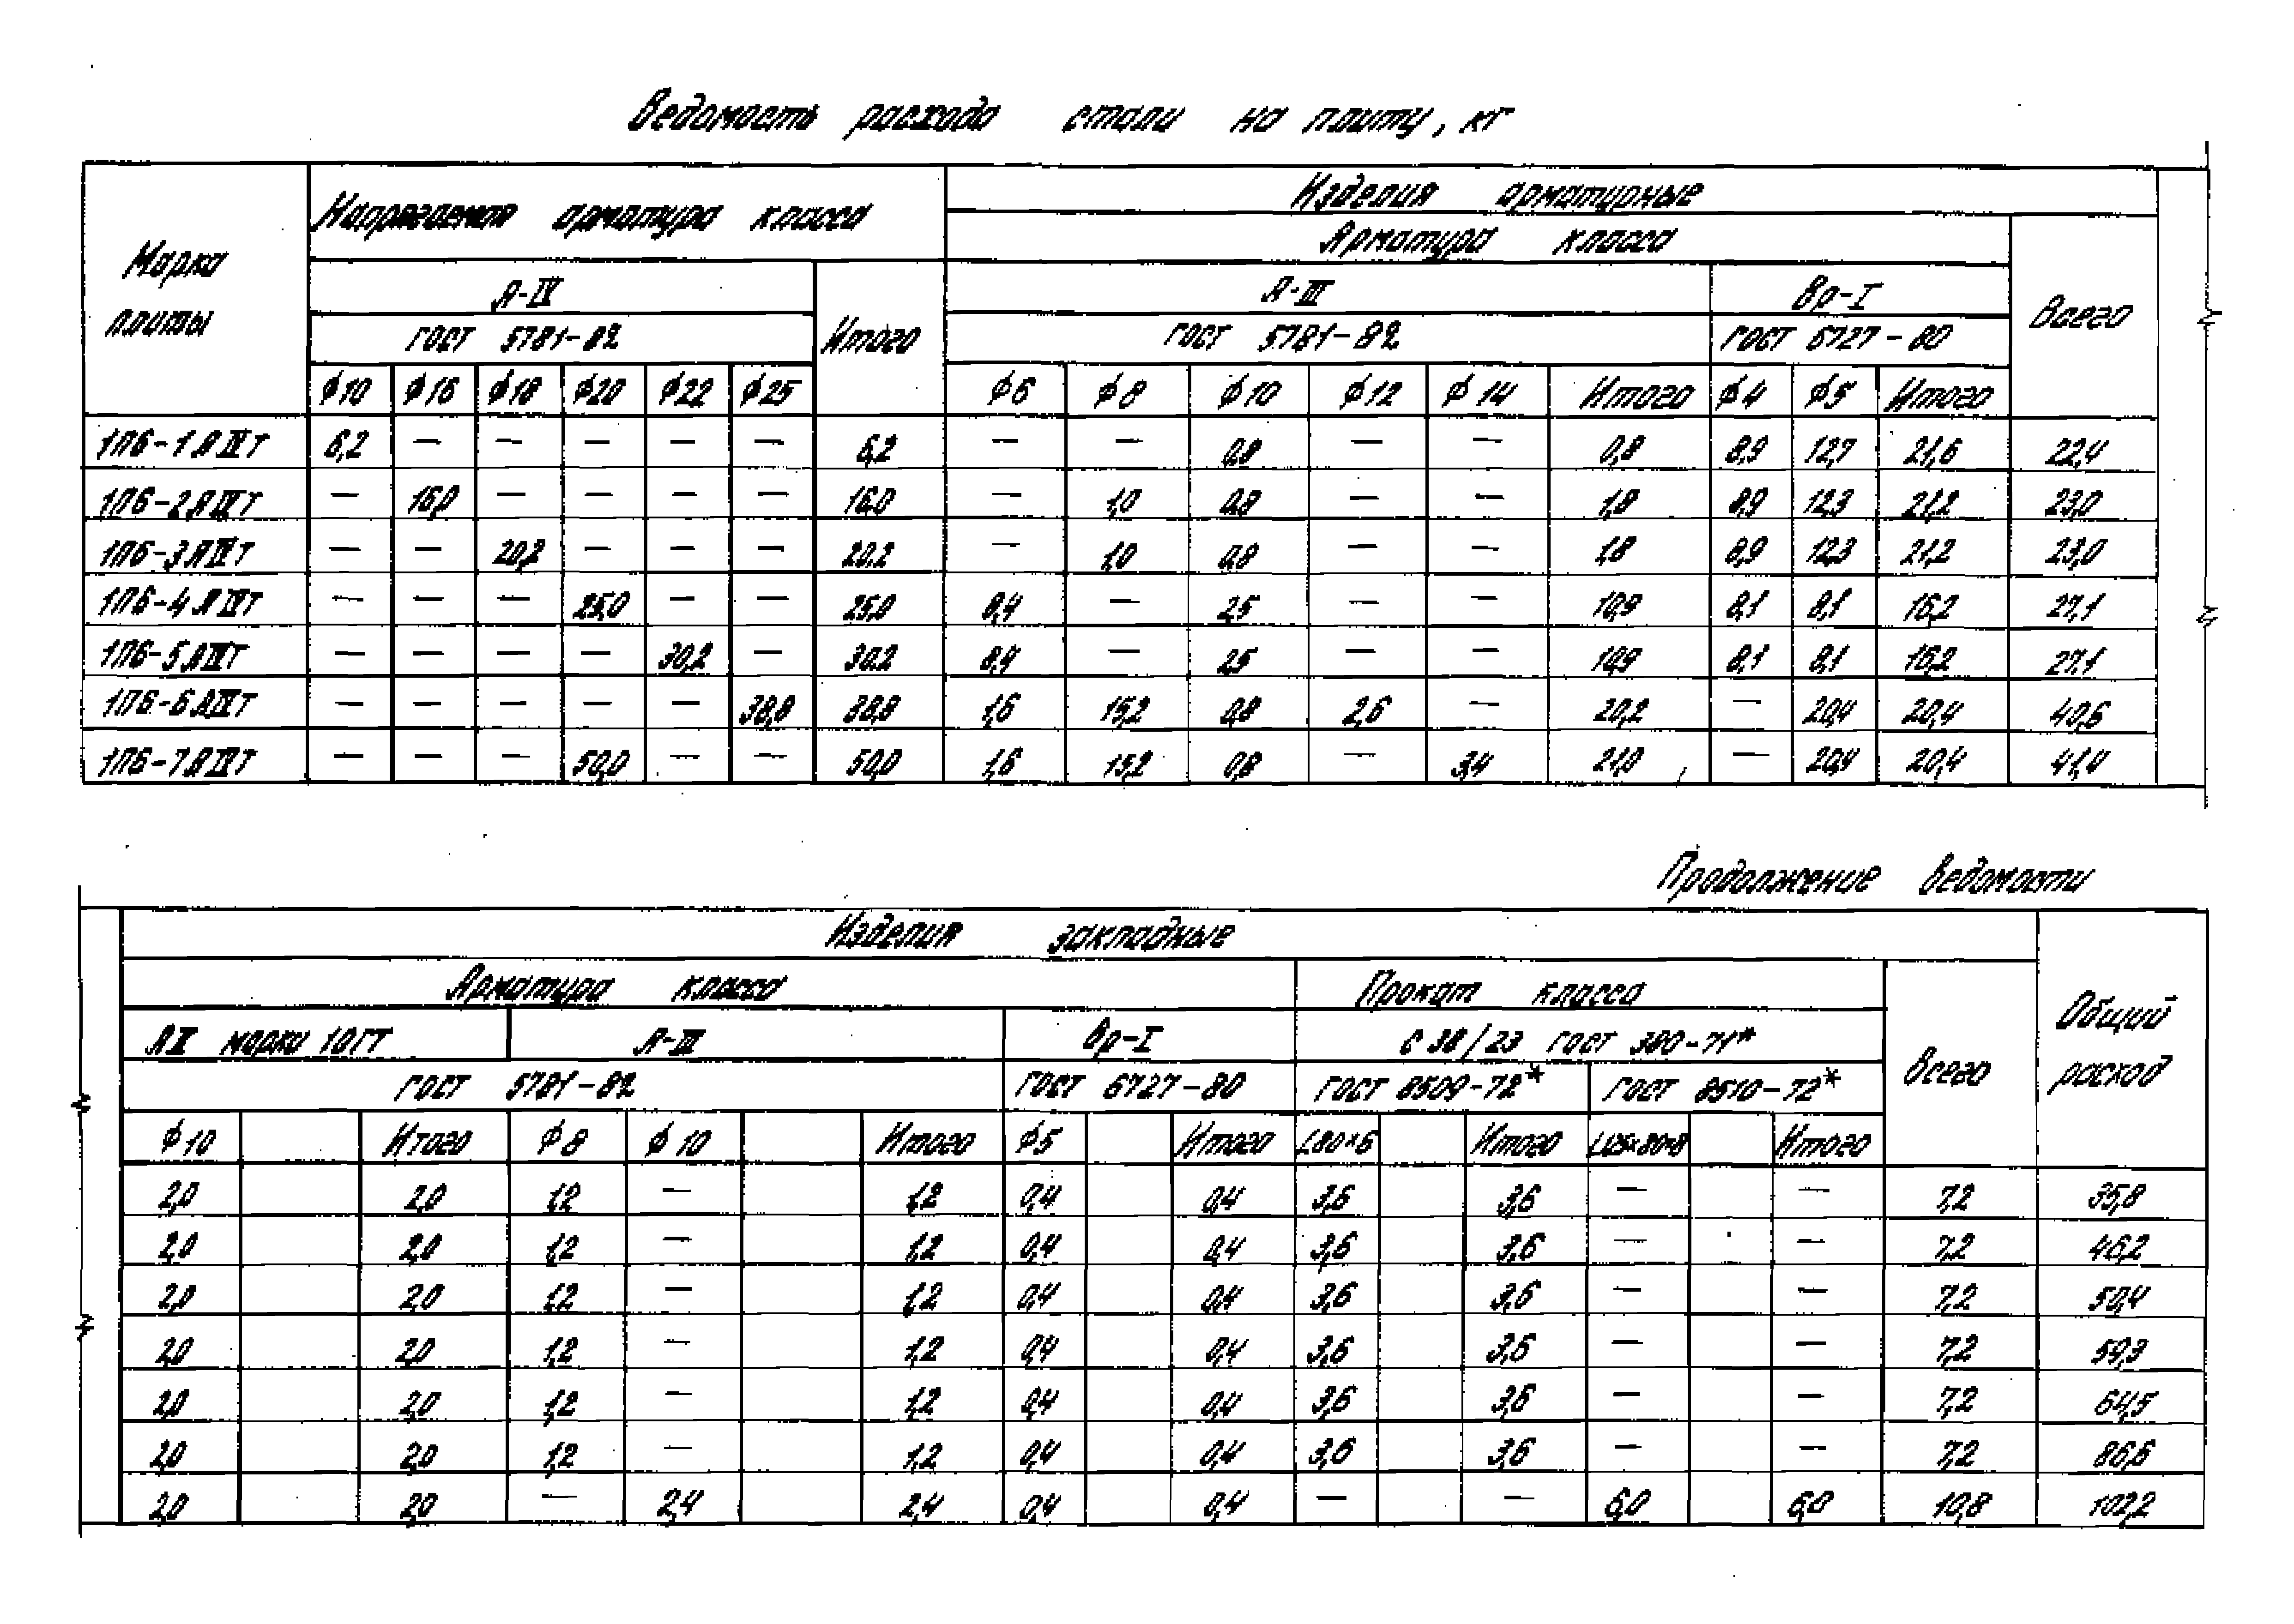 Ведомость расхода стали на плиту, кг
Марка плиты
Напрягаемая арматура класса
Изделия арматурные
Арматура класса
А-IV
Итого
А-III
Вр-I
Всего
ГОСТ 5781-82
ГОСТ 5781-82
ГОСТ 6727-80
ϕ10 ϕ16 ϕ18 ϕ20 ϕ22 ϕ25 ϕ6 ϕ8 ϕ10 ϕ12 ϕ14 Итого ϕ4 ϕ5 Итого
1П6-1АIVТ 6,2 — — — — — 6,2 — — 0,8 — — 0,8 8,9 12,7 21,6 22,4
1П6-2АIVТ — 16,0 — — — — 16,0 — 1,0 0,8 — — 1,8 8,9 12,3 21,2 23,0
1П6-3АIVТ — — 20,2 — — — 20,2 — 1,0 0,8 — — 1,8 8,9 12,3 21,2 23,0
1П6-4АIVТ — — — 25,0 — — 25,0 8,4 — 2,5 — — 10,9 8,1 8,1 16,2 27,1
1П6-5АIVТ — — — — 30,2 — 30,2 8,4 — 2,5 — — 10,9 8,1 8,1 16,2 27,1
1П6-6АIVТ — — — — — 38,8 38,8 1,6 15,2 0,8 2,6 — 20,2 — 20,4 20,4 40,6
1П6-7АIVТ — — — 50,0 — — 50,0 1,6 15,2 0,8 — 3,4 21,0 — 20,4 20,4 41,4
Продолжение ведомости
Изделия закладные
Общий расход
Арматура класса
Прокат класса
Всего
АII марки 10ГТ
А-III
Вр-I
С 38/23 ГОСТ 380-71*
ГОСТ 5781-82
ГОСТ 6727-80
ГОСТ 8509-72*
ГОСТ 8510-72*
ϕ10 Итого ϕ8 ϕ10 Итого ϕ5 Итого L80×6 Итого L125×80×8 Итого
2,0 2,0 1,2 — 1,2 0,4 0,4 3,6 3,6 — — 7,2 35,8
2,0 2,0 1,2 — 1,2 0,4 0,4 3,6 3,6 — — 7,2 46,2
2,0 2,0 1,2 — 1,2 0,4 0,4 3,6 3,6 — — 7,2 50,4
2,0 2,0 1,2 — 1,2 0,4 0,4 3,6 3,6 — — 7,2 59,3
2,0 2,0 1,2 — 1,2 0,4 0,4 3,6 3,6 — — 7,2 64,5
2,0 2,0 1,2 — 1,2 0,4 0,4 3,6 3,6 — — 7,2 86,6
2,0 2,0 — 2,4 2,4 0,4 0,4 — — 6,0 6,0 10,8 102,2